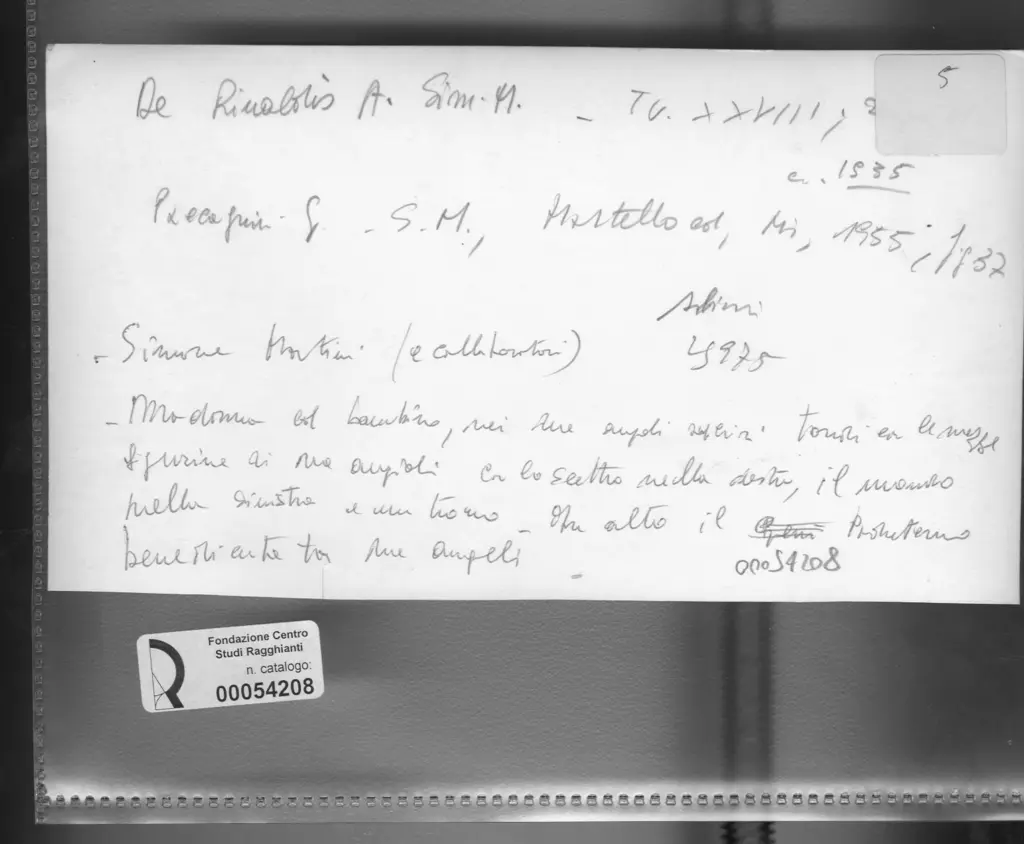 De Rinaldis A. Sim. M. - Tv. XXVIII,
5
c. 1935
Paccagnini G. - S.M., Martello ed, Mi, 1955; f. 37
Alinari
- Simone Martini (e collaboratori)
- Madonna col bambino, nei due angoli tondi con le mezze
figurine di due angioli con lo scettro nella destra, il mondo
nella sinistra e un trono - In alto il Padreterno
benedicente tra due angeli
00054208
Fondazione Centro
Studi Ragghianti
n. catalogo:
00054208